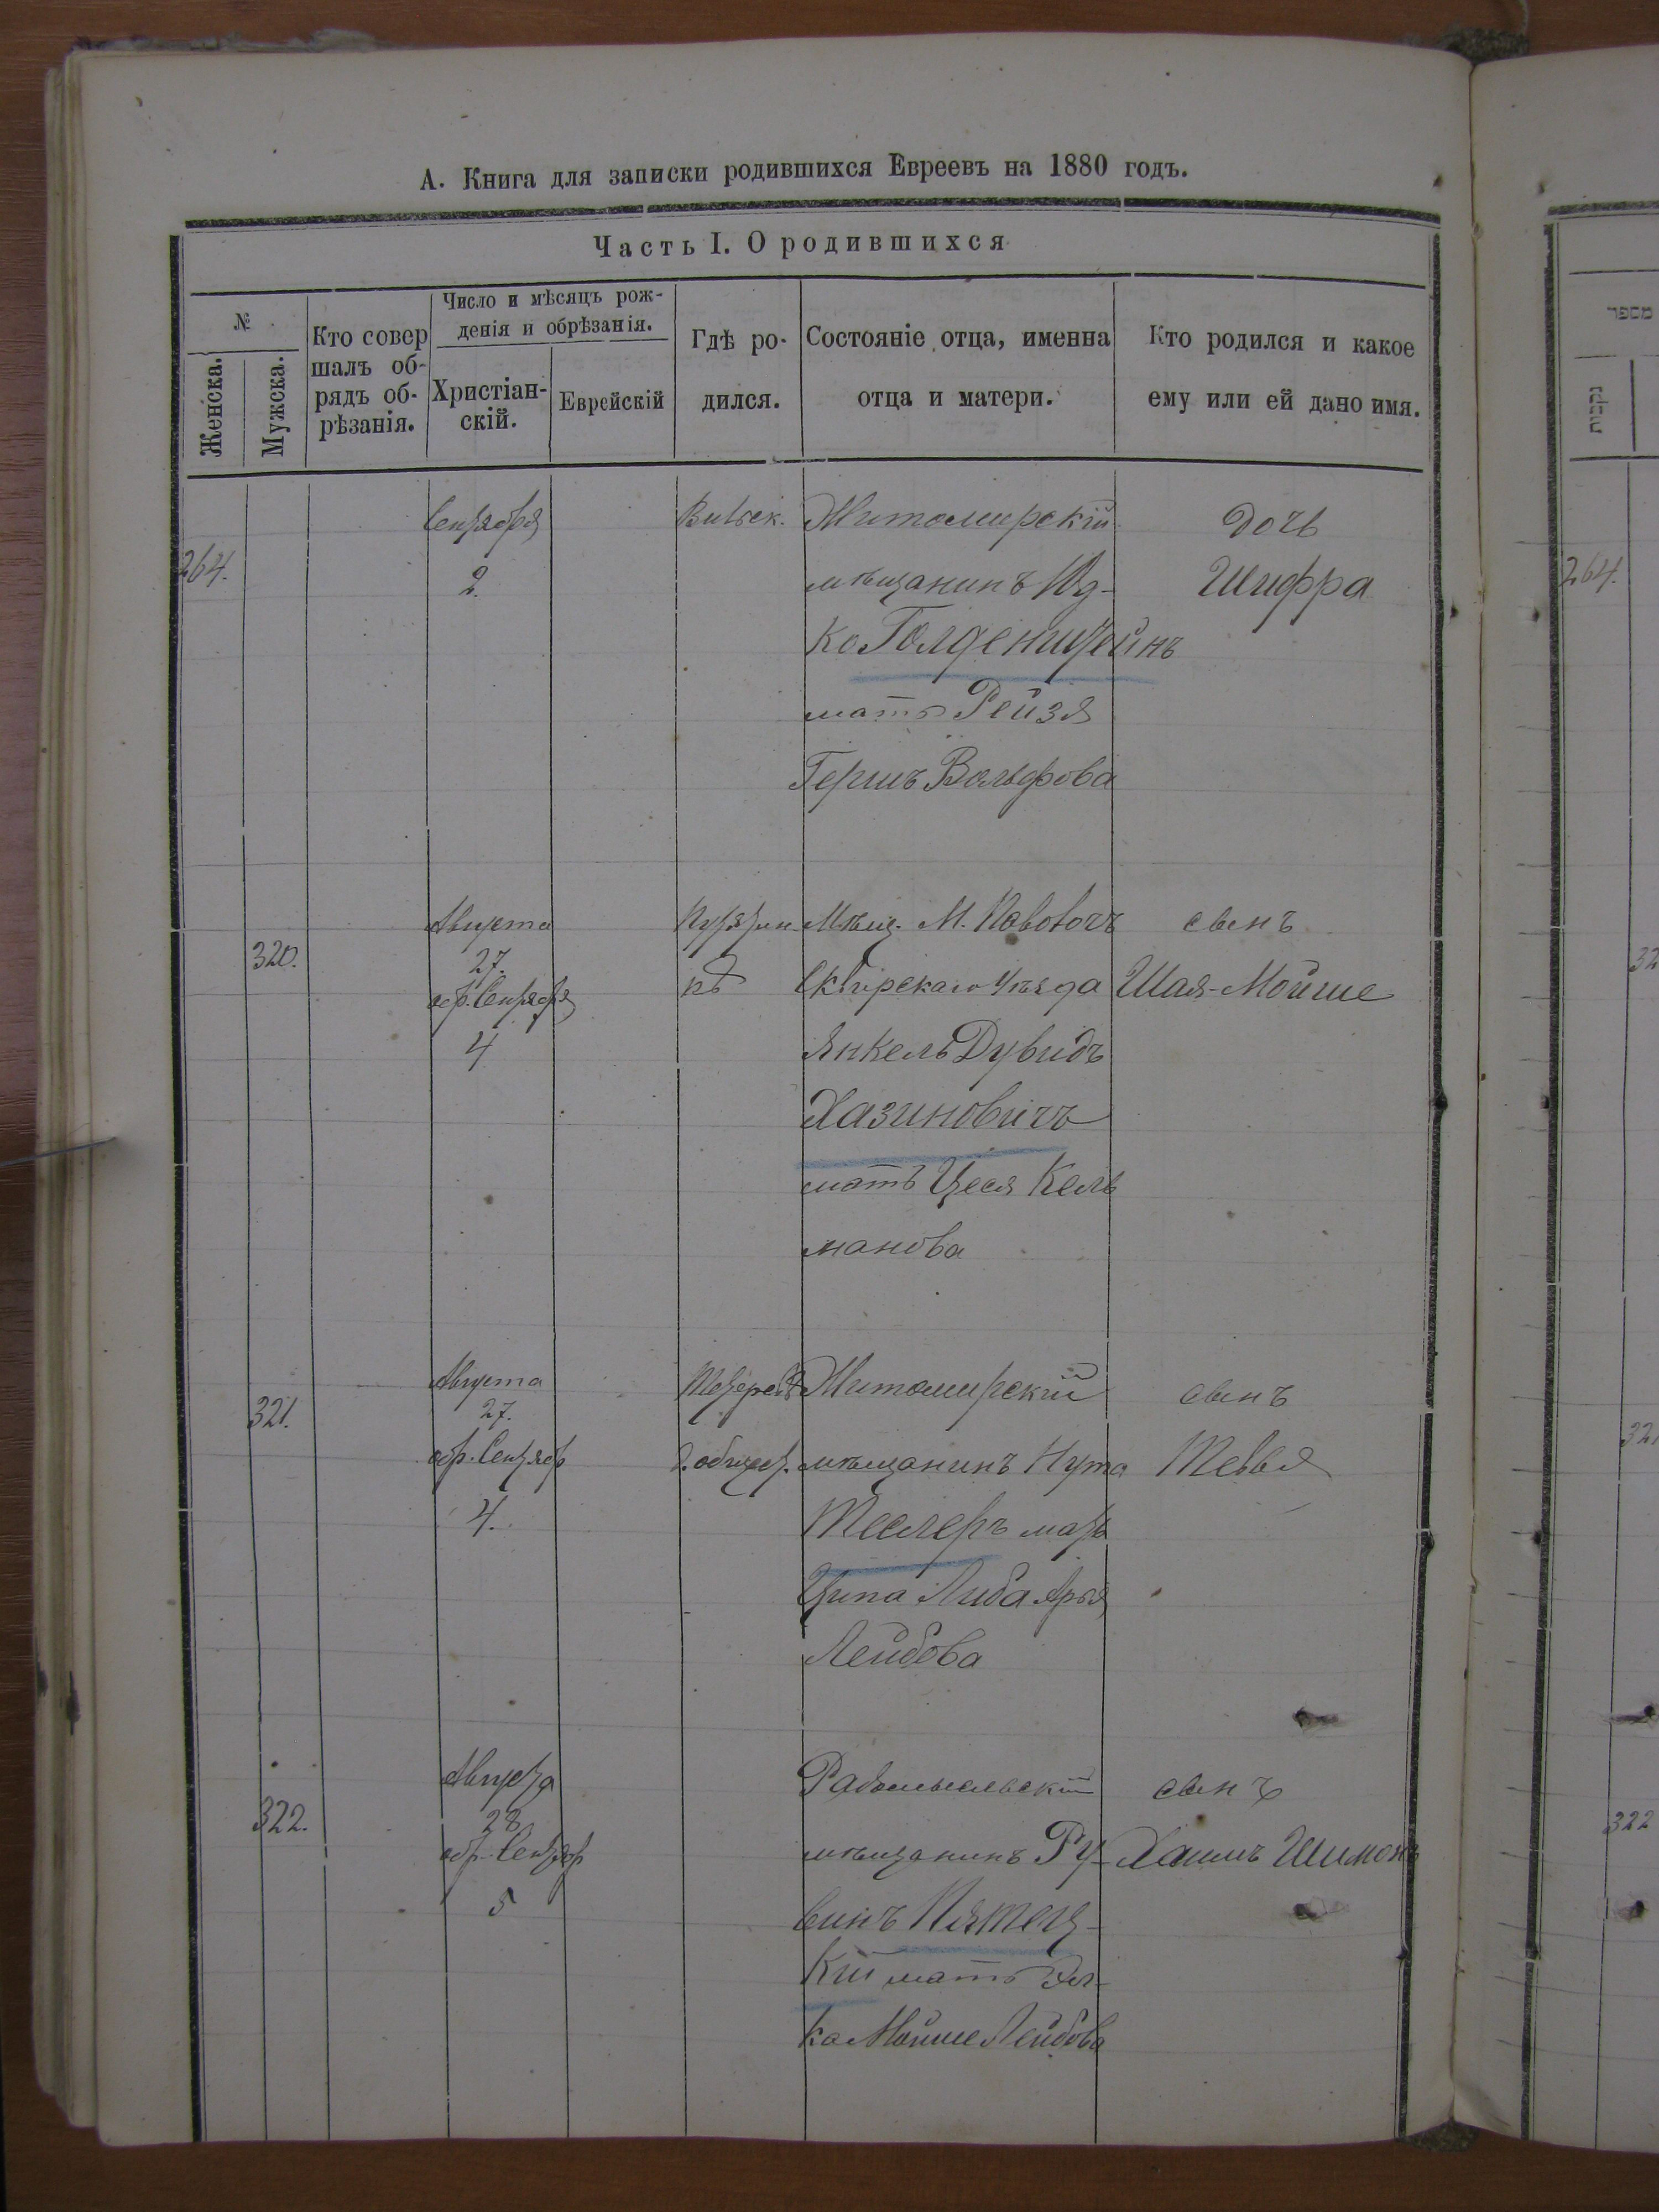 А. Книга для записки родившихся Евреевъ на 1880 годъ.
Часть I. О родившихся
№
Женска.
Мужска.
Кто совер
шалъ об-
рядъ об-
рѣзанія.
Число и мѣсяцъ рож-
денія и обрѣзанія.
Христіан-
скій.
Еврейскій
Гдѣ ро-
дился.
Состояніе отца, именна
отца и матери.
Кто родился и какое
ему или ей дано имя.
264.
Сентября
2.
Житомирскій
мѣщанинъ Иц-
ко Голденштейнъ
мать Рейзя
Гершъ Вольфова
дочь
Шифра
320.
Августа
27.
обр. Сентября
4
Мѣщ. М. Паволочъ
Сквирскаго Уѣзда
Янкель Дувидъ
Хазиновичъ
мать Цеся Кель
манова
сынъ
Шая-Мойше
321.
Августа
27.
обр. Сентябр
4.
Житомирскій
мѣщанинъ Нута
Теслеръ мать
Ципа Либа Арья
Лейбова
сынъ
Тевья
322.
Августа
28
обр. Сентябр
5
Радомысльскій
мѣщанинъ Ру-
винъ Пятец-
кій мать
ка Мойше Лейбова
сынъ
Хаимъ Шимонъ
מספר
נקבות
264.
32
321
322